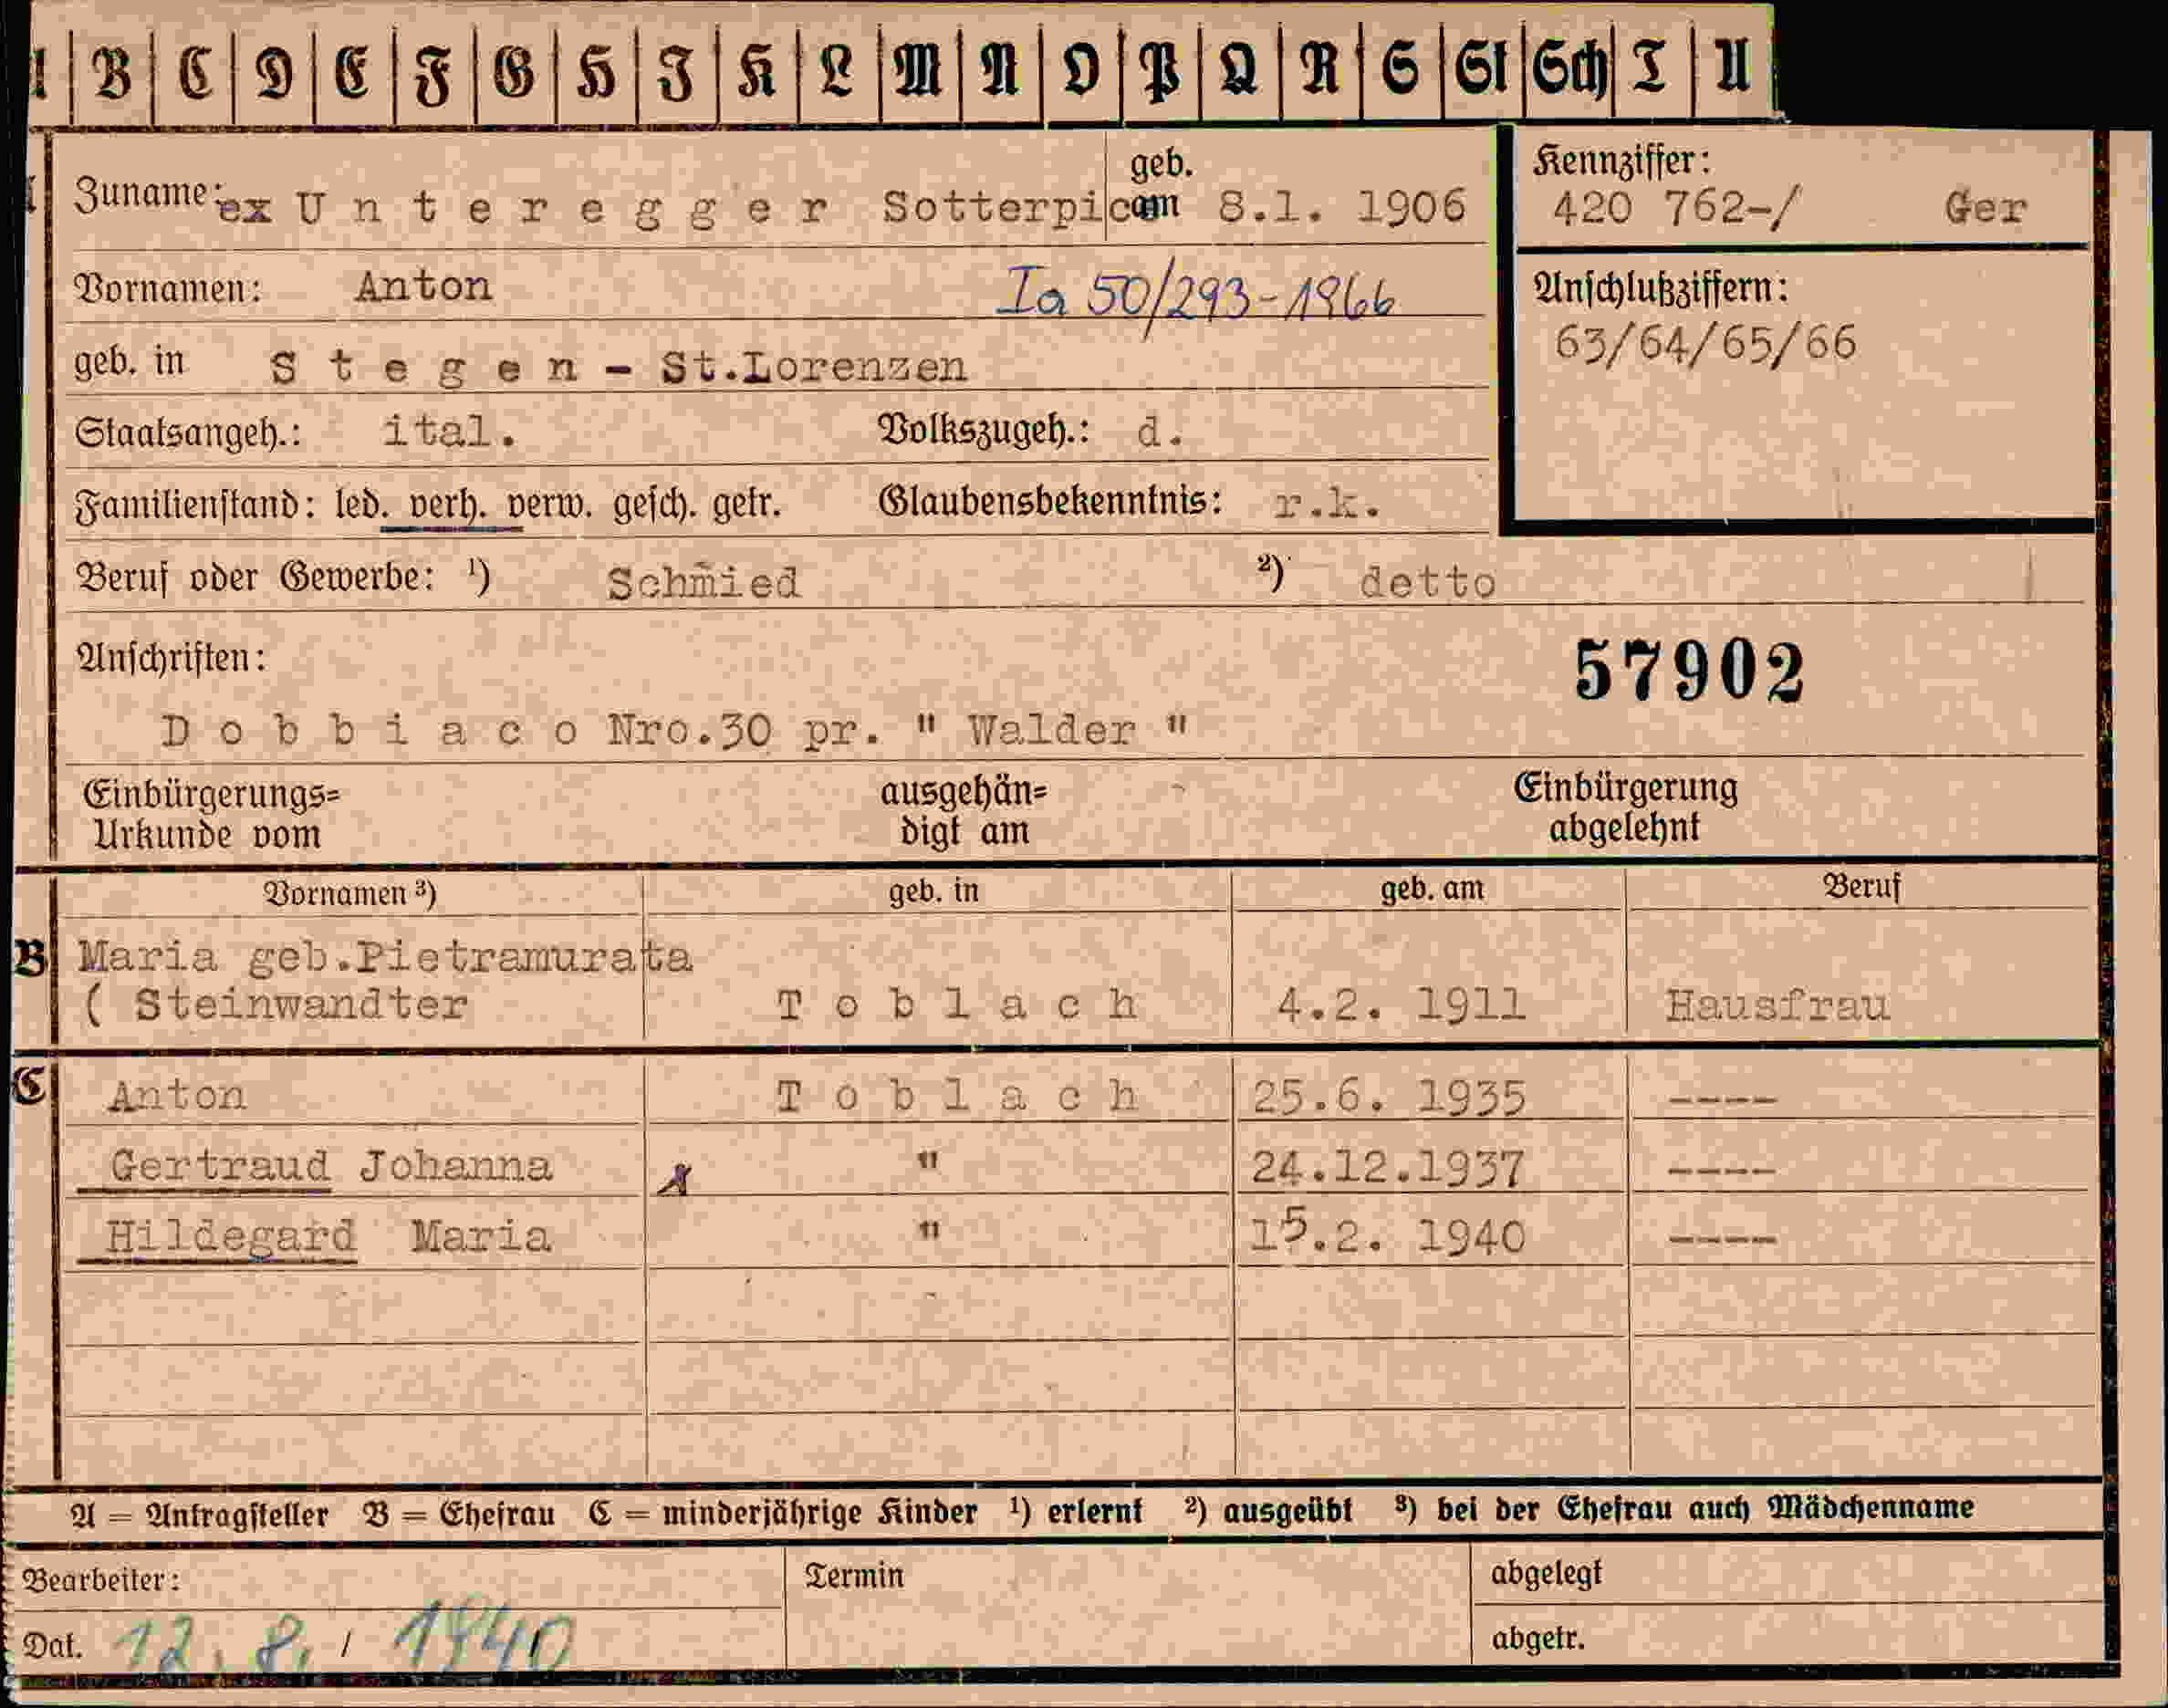 B C D E F G H J K L M N O P Q R S St Sch T U
Zuname: ex U n t e r e g g e r Sotterpicom geb. am 8.1. 1906
Kennziffer:
420 762-/ Ger
Vornamen: Anton
Ia 50/293-1966
Anschlußziffern:
63/64/65/66
geb. in S t e g e n - St.Lorenzen
Staatsangeh.: ital. Volkszugeh.: d.
Familienstand: led. verh. verw. gesch. getr. Glaubensbekenntnis: r.k.
Beruf oder Gewerbe: ¹) Schmied ²) detto
Anschriften:
57902
D o b b i a c o Nro.30 pr. " Walder "
Einbürgerungs= ausgehän= Einbürgerung
Urkunde vom digt am abgelehnt
Vornamen ³) geb. in geb. am Beruf
B Maria geb.Pietramurata
( Steinwandter T o b l a c h 4.2. 1911 Hausfrau
C Anton T o b l a c h 25.6. 1935 ----
Gertraud Johanna " 24.12.1937 ----
Hildegard Maria " 15.2. 1940 ----
A = Antragsteller B = Ehefrau C = minderjährige Kinder ¹) erlernt ²) ausgeübt ³) bei der Ehefrau auch Mädchenname
Bearbeiter: Termin abgelegt
Dat. 12.8./1940 abgetr.